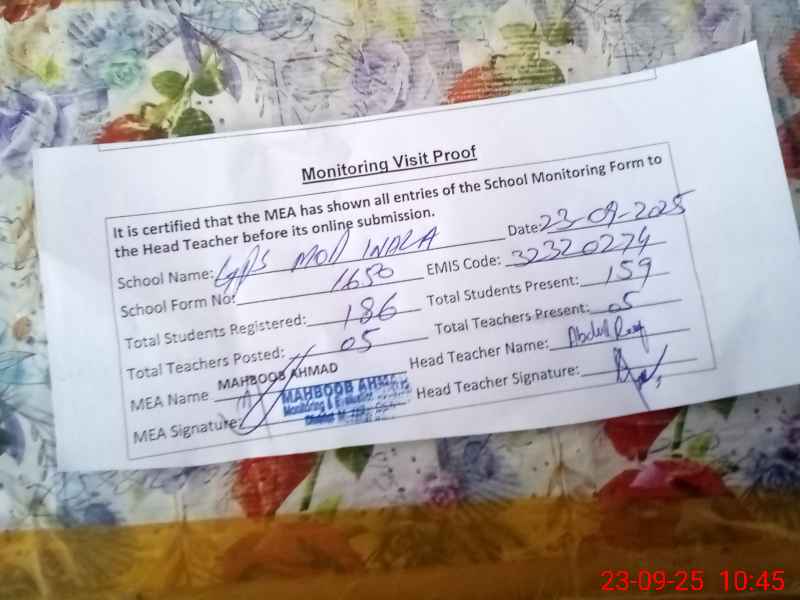 Monitoring Visit Proof
It is certified that the MEA has shown all entries of the School Monitoring Form to
the Head Teacher before its online submission.
School Name: GPS MOD INDRA Date: 23-09-2025
School Form No: 1650 EMIS Code: 32320274
Total Students Registered: 186 Total Students Present: 159
Total Teachers Posted: 05 Total Teachers Present: 05
MEA Name MAHBOOB AHMAD Head Teacher Name: Abdul
MEA Signature: Head Teacher Signature:
MAHBOOB AHMAD
Monitoring & Evaluation
District
23-09-25 10:45